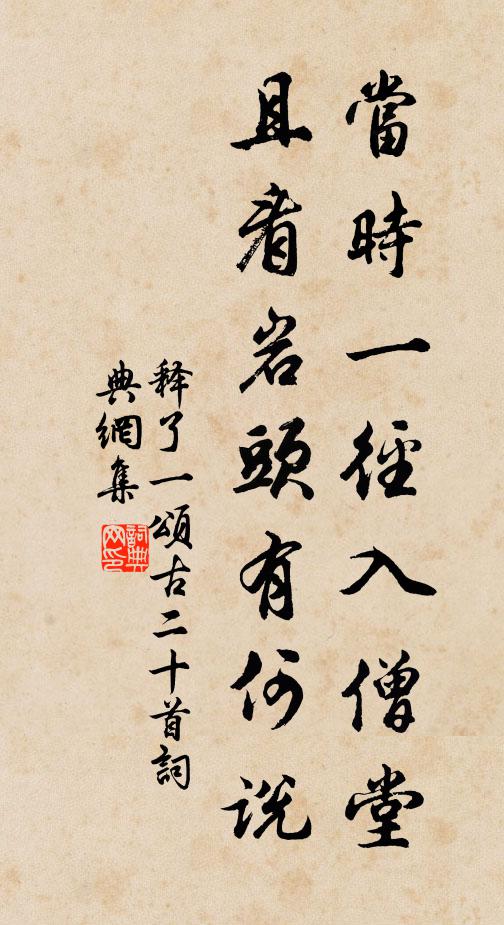 當時一徑入僧堂
且看岩頭有何説
释了一頌古二十首詞
典網集
詞典网印